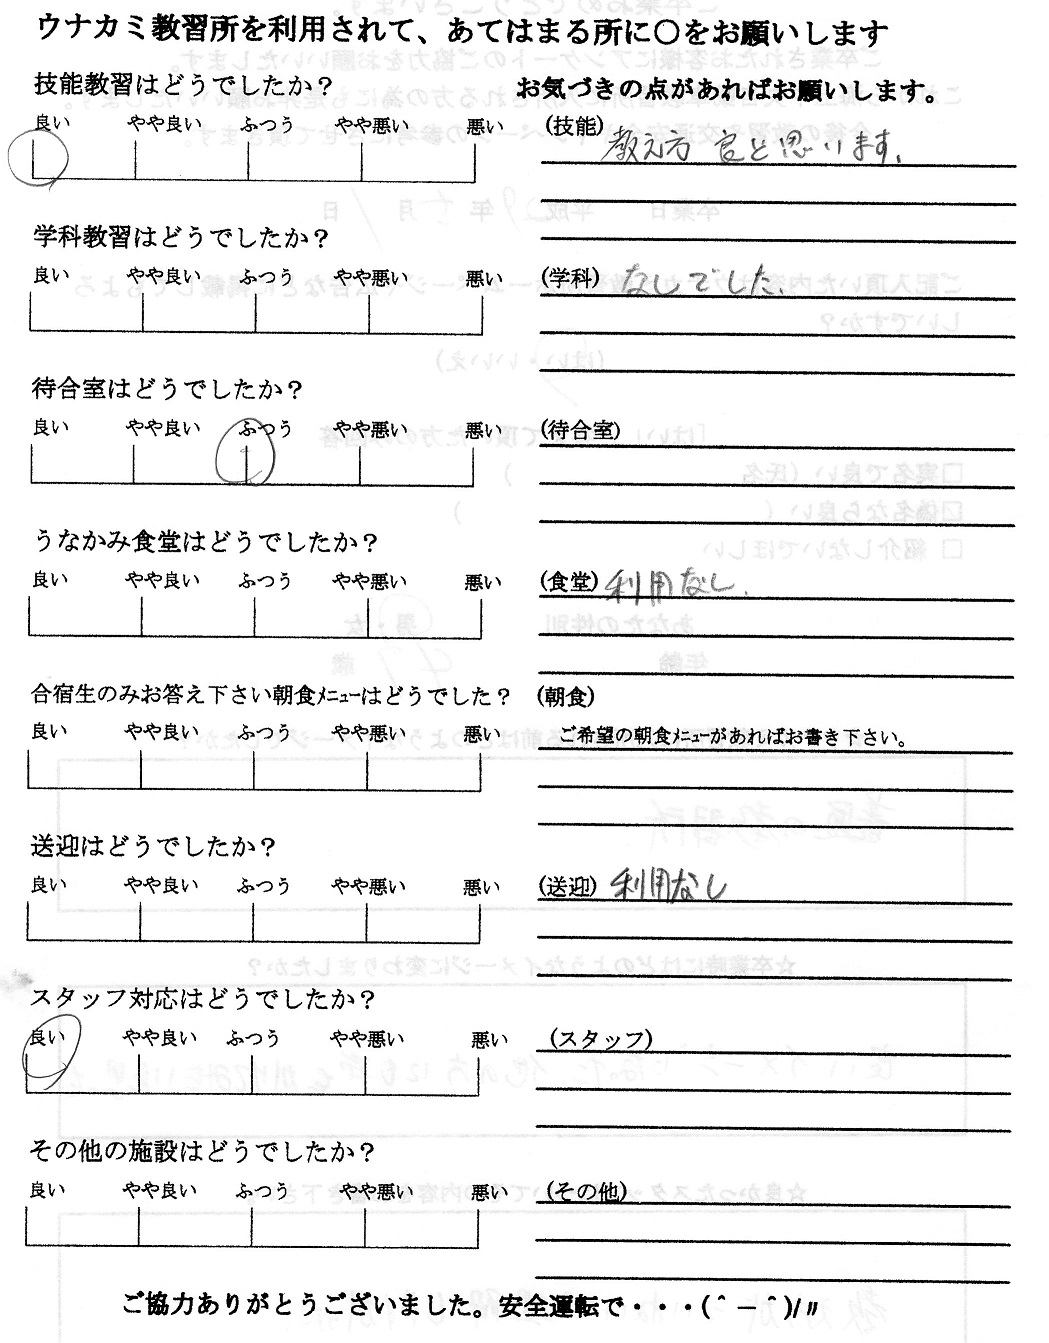 ウナカミ教習所を利用されて、あてはまる所に〇をお願いします
技能教習はどうでしたか？
お気づきの点があればお願いします。
良い やや良い ふつう やや悪い 悪い
(技能) 教え方 良と思います。
学科教習はどうでしたか？
良い やや良い ふつう やや悪い 悪い
(学科) なしでした.
待合室はどうでしたか？
良い やや良い ふつう やや悪い 悪い
(待合室)
うなかみ食堂はどうでしたか？
良い やや良い ふつう やや悪い 悪い
(食堂) 利用なし.
合宿生のみお答え下さい朝食ﾒﾆｭｰはどうでした？ (朝食)
良い やや良い ふつう やや悪い 悪い
ご希望の朝食ﾒﾆｭｰがあればお書き下さい。
送迎はどうでしたか？
良い やや良い ふつう やや悪い 悪い
(送迎) 利用なし
スタッフ対応はどうでしたか？
良い やや良い ふつう やや悪い 悪い
(スタッフ)
その他の施設はどうでしたか？
良い やや良い ふつう やや悪い 悪い
(その他)
ご協力ありがとうございました。安全運転で・・・(＾－＾)/〃